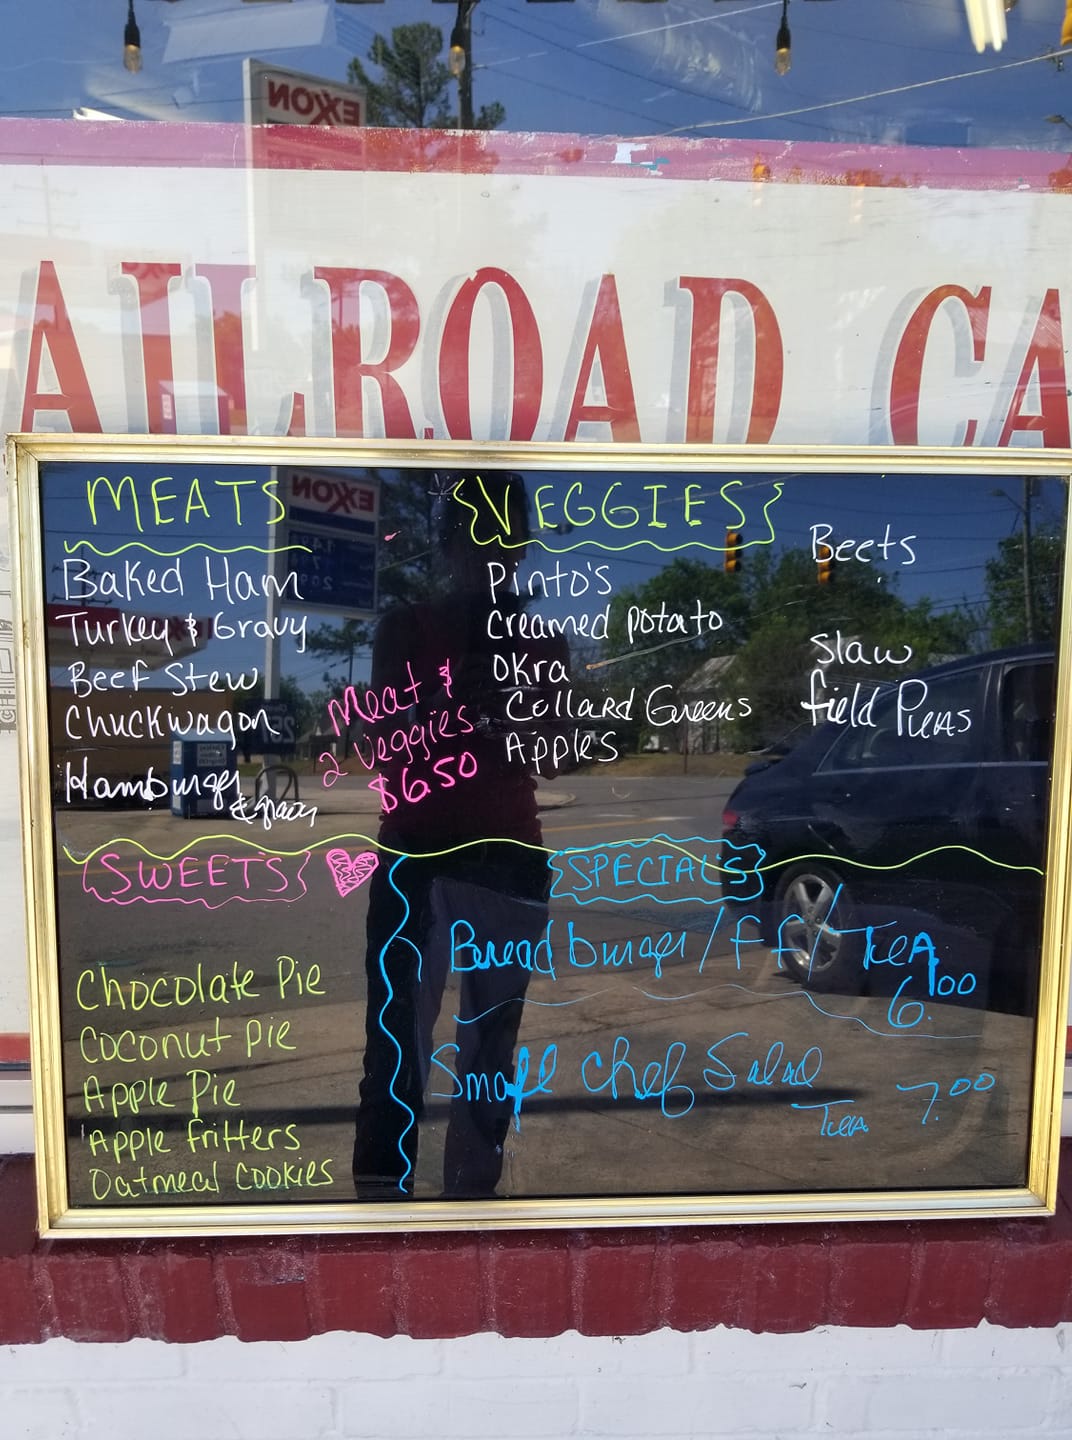 EXXON
AILROAD CA
MEATS
Baked Ham
Turkey & Gravy
Beef Stew
Chuckwagon
Hamburger
& gravy
Meat &
2 Veggies
$6.50
VEGGIES
Pinto's
Creamed potato
Okra
Collard Greens
Apples
Beets
Slaw
field Peas
SWEETS
Chocolate Pie
Coconut pie
Apple Pie
Apple fritters
Oatmeal Cookies
SPECIAL'S
Bread burger / ff / Tea
6.00
Small Chef Salad
Tea 7.00